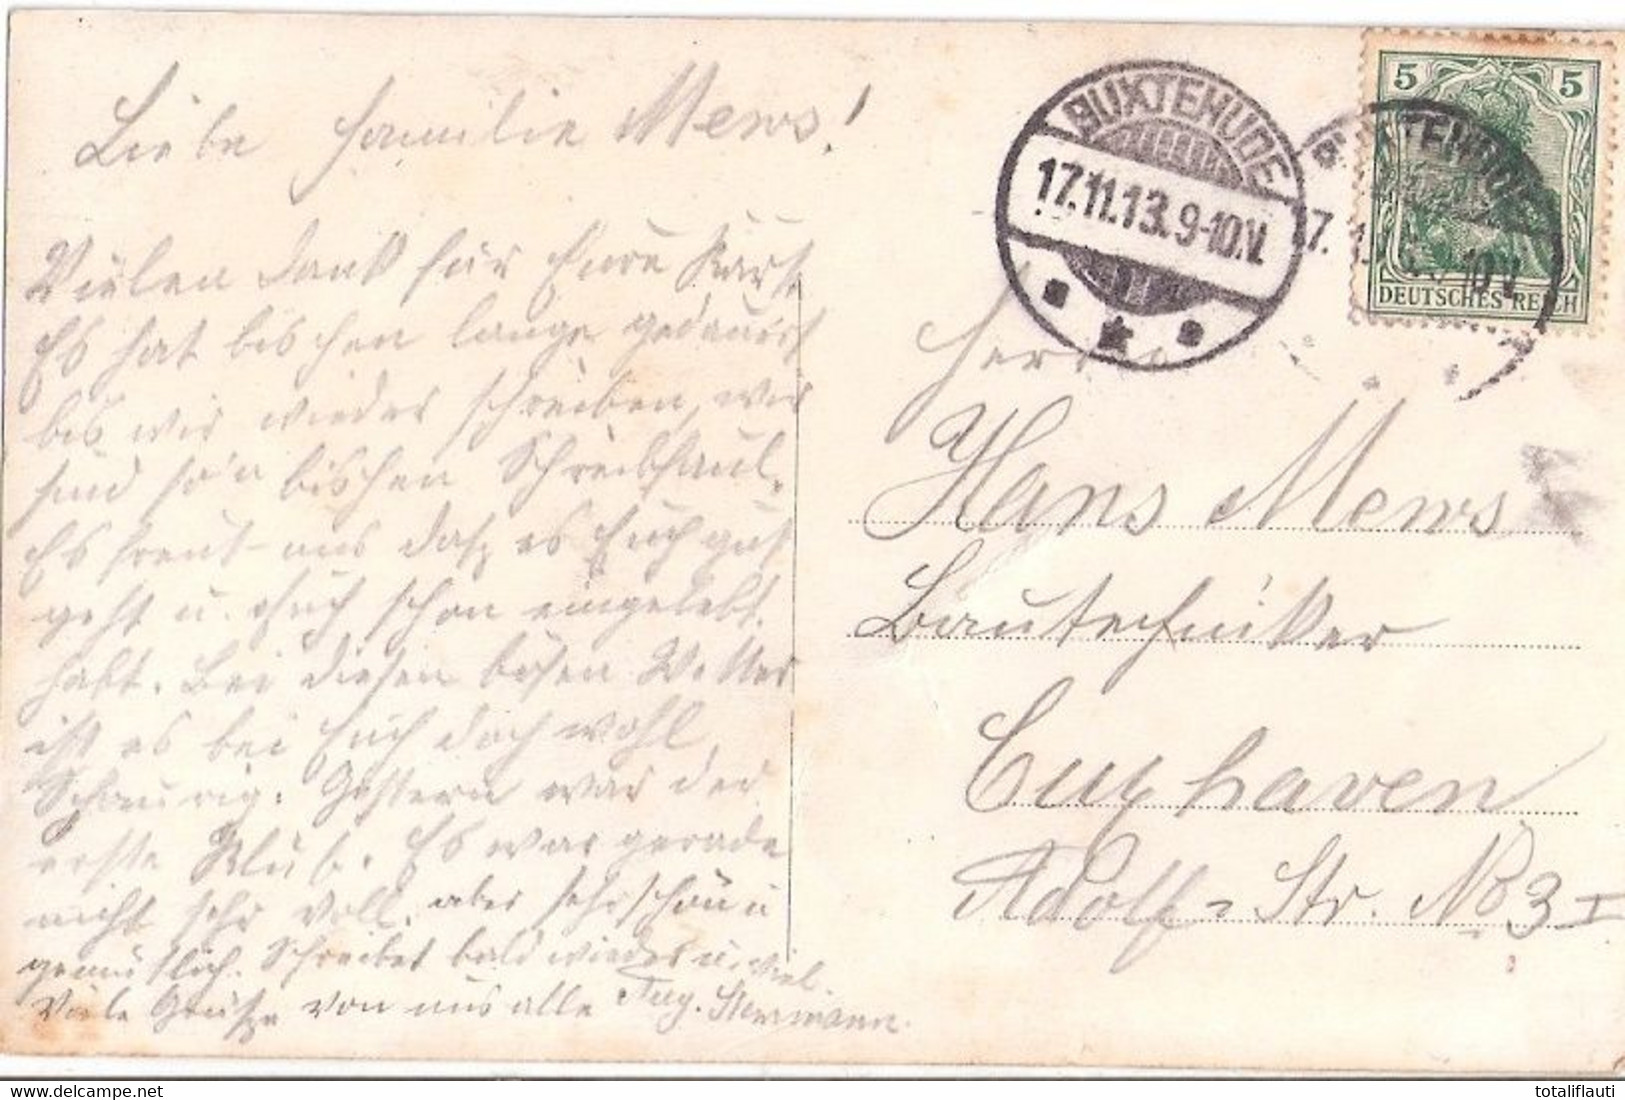 Liebe Familie Mews!
Vielen Dank für Eure Karte
Es hat bischen lange gedauert
bis wir wieder schreiben, wir
sind so'n bischen Schreibfaul.
Es freut uns daß es Euch gut
geht u. Euch schon eingelebt
habt. Bei diesen bösen Wetter
ist es bei Euch doch wohl
Schaurig. Gestern war der
erste Klub. Es war gerade
nicht sehr voll, aber sehr schön u
gemütlich. Schreibet bald wieder u. viel.
Viele Grüße von uns alle Aug. Stermann.
BUXTEHUDE
17.11.13.9-10.V.
BUXTEHUDE
5 5
DEUTSCHES REICH
Herrn
Hans Mews
Bautechniker
Cuxhaven
Adolf-Str. No 3 I
totaliflauti